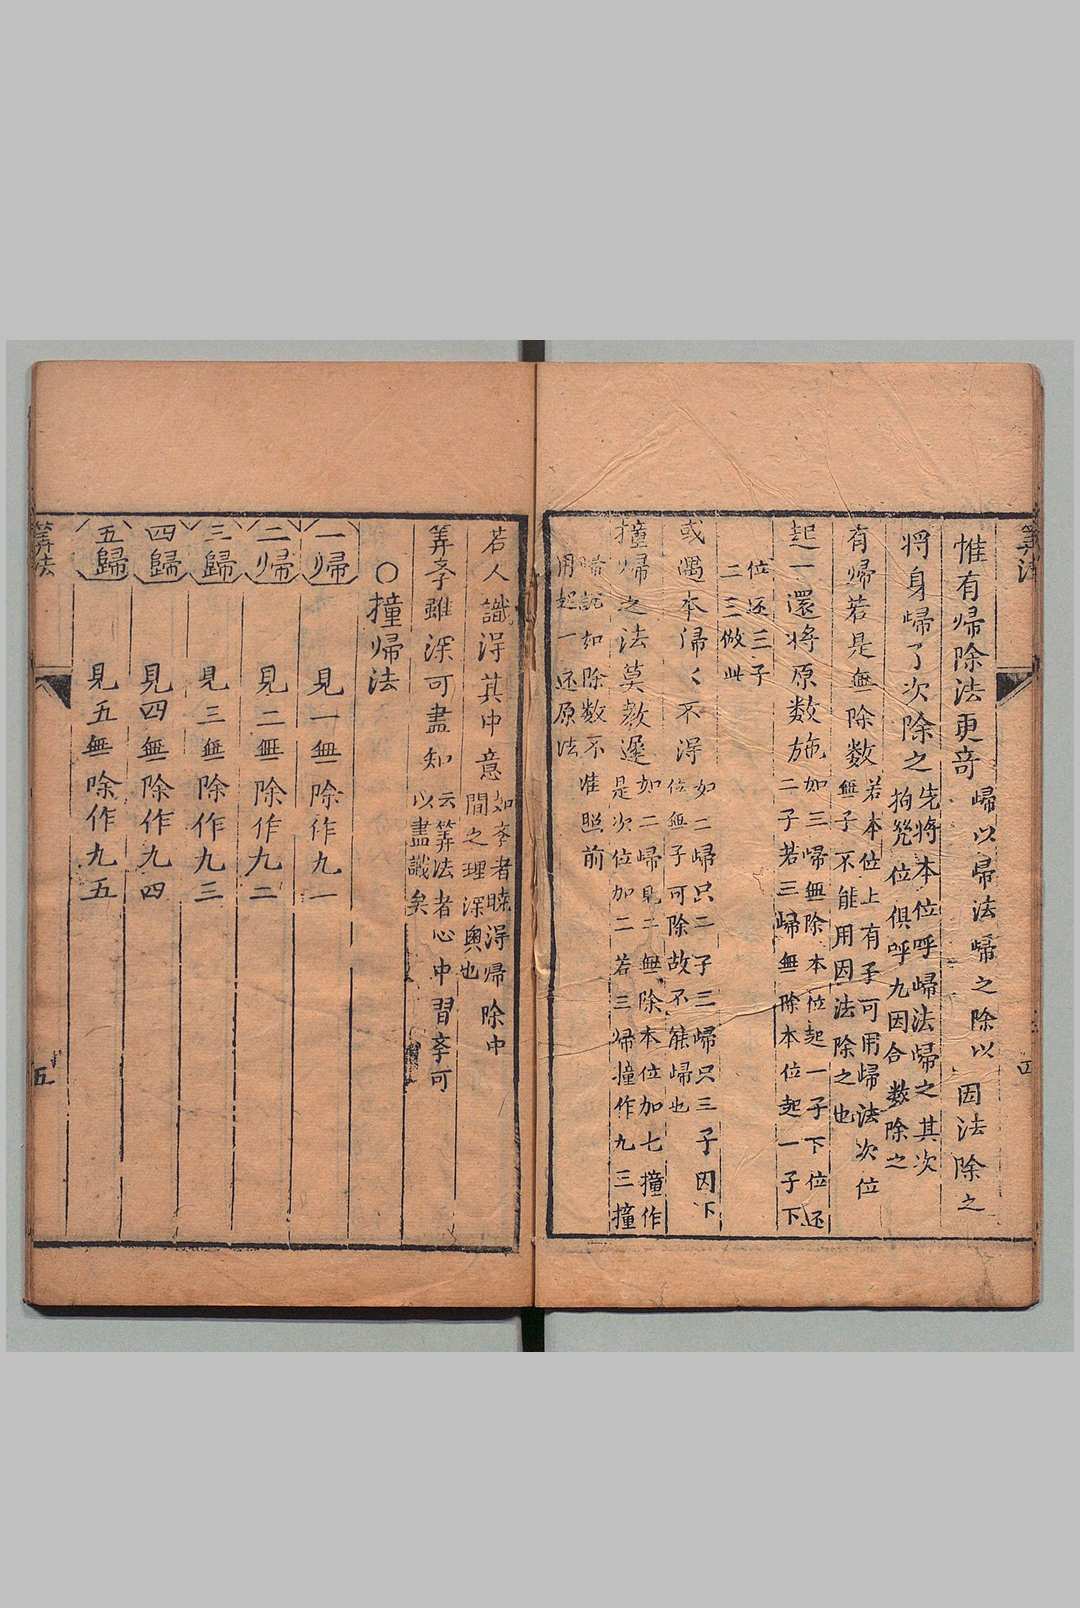 惟有帰除法更奇 歸以歸法歸之除以因法除之
将身歸了次除之 先将本位呼歸法歸之其次
位俱呼九因合数除之
有帰若是無除数 若本位上有子可用歸法次位
無子不能用因法除之也
起一還将原数施 如三歸無除本位起一子下位还
二子若三歸無除本位起一子下
位还三子
二三做此
或遇本帰々不得 如二歸只二子三歸只三子因下
位無子可除故不能歸也
撞帰之法莫教遲 如二歸見二無除本位加七撞作
是次位加二若三帰撞作九三撞
歸説如除数不准照前
用起一还原法
若人識得其中意 如斈者曉得歸除中
間之理深奧也
筭斈雖深可盡知 云筭法者心中習斈可
以盡識矣
○撞帰法
一帰 見一無除作九一
二帰 見二無除作九二
三歸 見三無除作九三
四歸 見四無除作九四
五歸 見五無除作九五
筭法 五